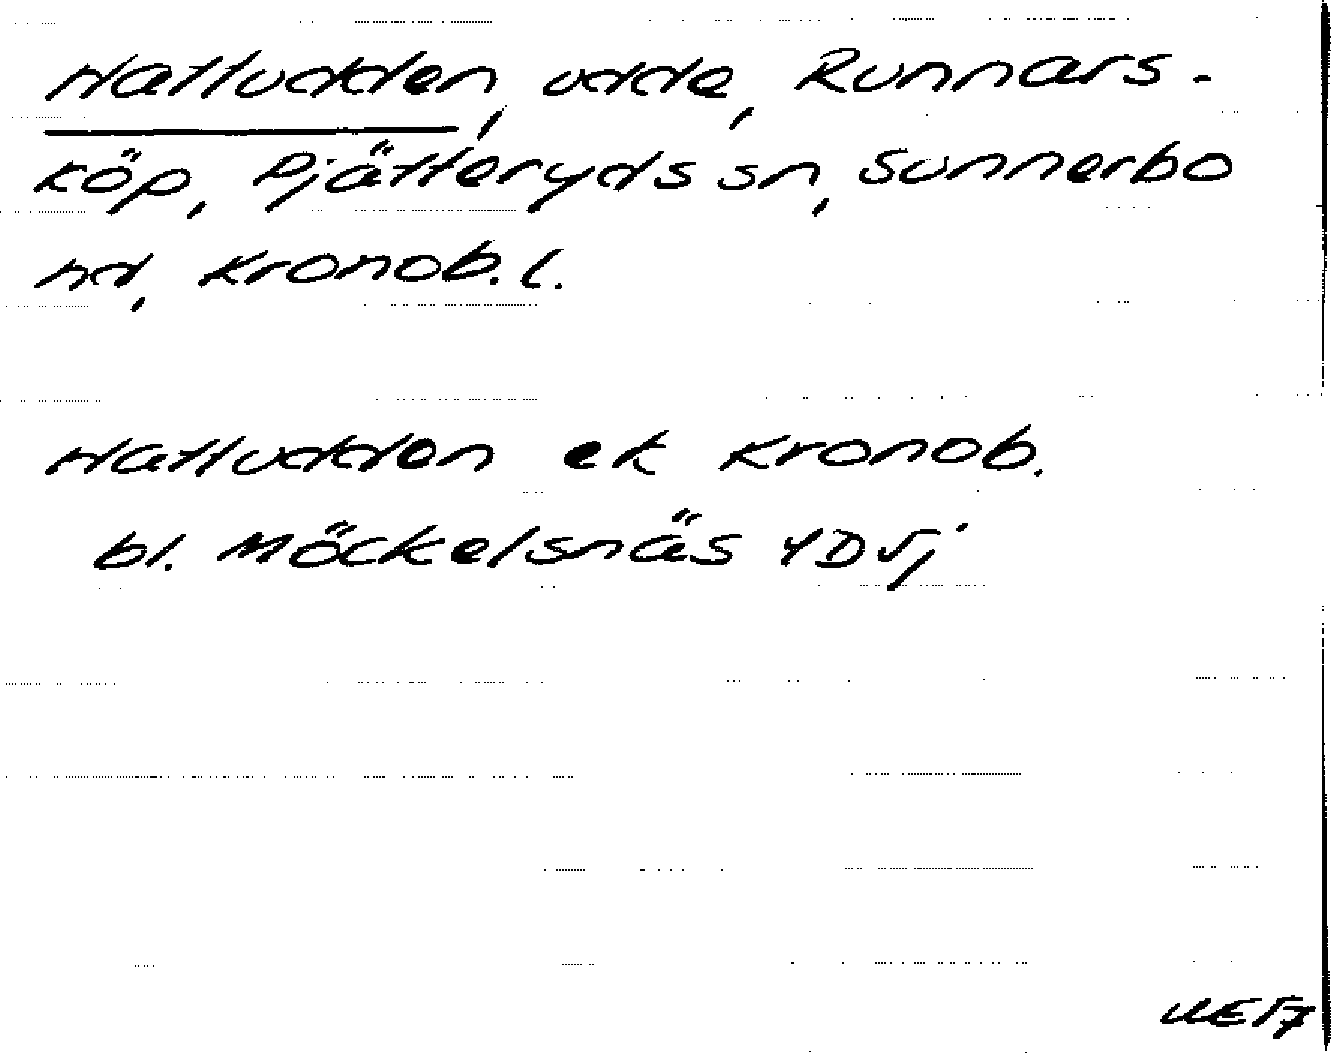 Hatludden, udde, Runnars-
köp, Pjätteryds sn, Sunnerbo
hd, Kronob. l.
Hatludden ek Kronob.
bl. Möckelsnäs 4D5j